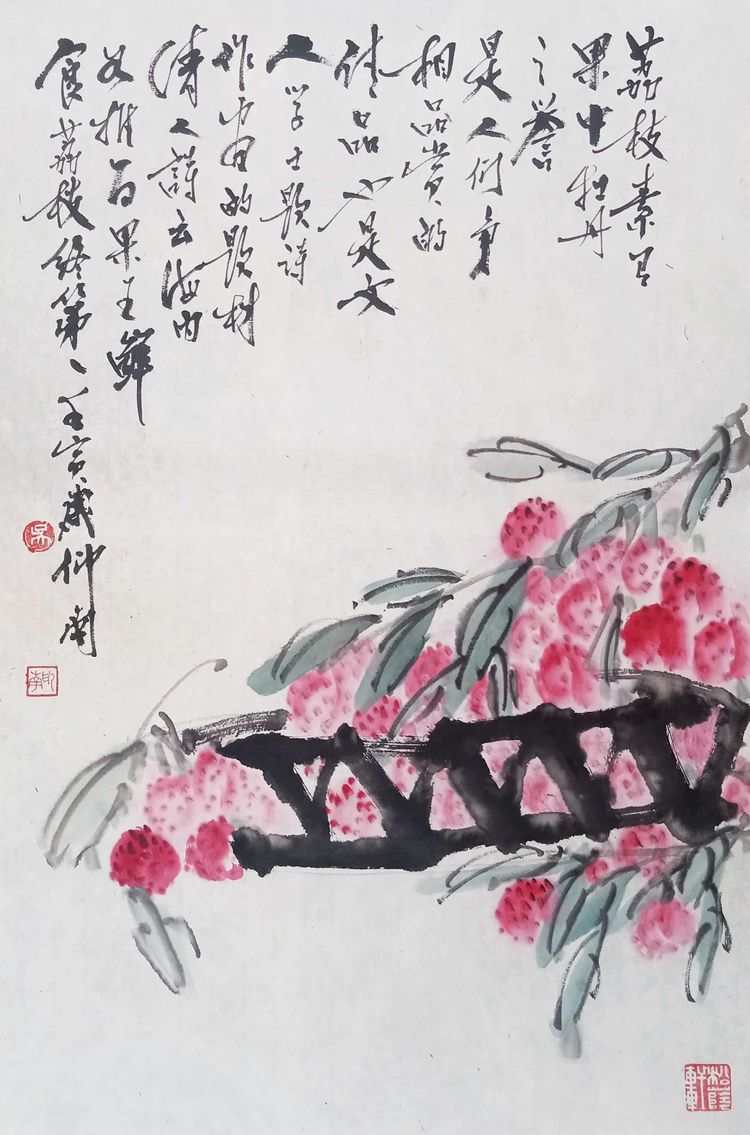 荔枝素有
果中牡丹
之誉
是人们争
相品赏的
佳品也是文
人学士题诗
作画的题材
清人詩云海内
如推百果王鲜
食荔枝终第一壬寅歲仲南
吴
松蔭軒